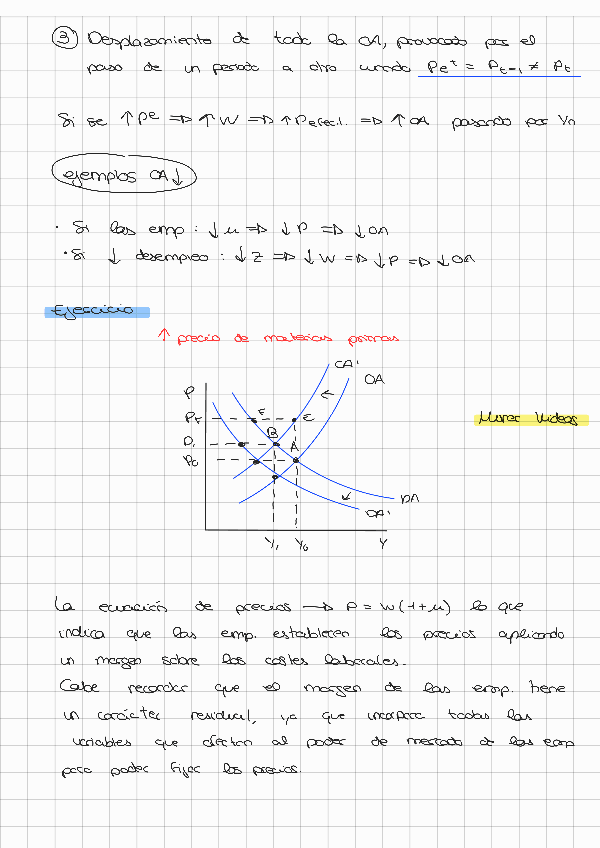 ③ Desplazamiento de toda la OA, provocado por el
paso de un periodo a otro cuando Pe^t = P_{t-1} ≠ P_t
Si se ↑ Pe ⇒ ↑ W ⇒ ↑ P efect. ⇒ ↑ OA pasando por Yn
ejemplos OA ↓
· Si las emp : ↓ μ ⇒ ↓ P ⇒ ↓ OA
· Si ↓ desempleo : ↓ Z ⇒ ↓ W ⇒ ↓ P ⇒ ↓ OA
Ejercicio
↑ precio de materias primas
OA'
P
OA
PF
F
E
Mirar Videos
P1
B
A
P0
DA
DA'
Y1
Y0
Y
La ecuación de precios → P = W(1+μ) lo que
indica que las emp. establecen los precios aplicando
un margen sobre los costes laborales.
Cabe recordar que el margen de las emp. tiene
un carácter residual, ya que incorpora todas las
variables que afectan al poder de mercado de las emp
para poder fijar los precios.